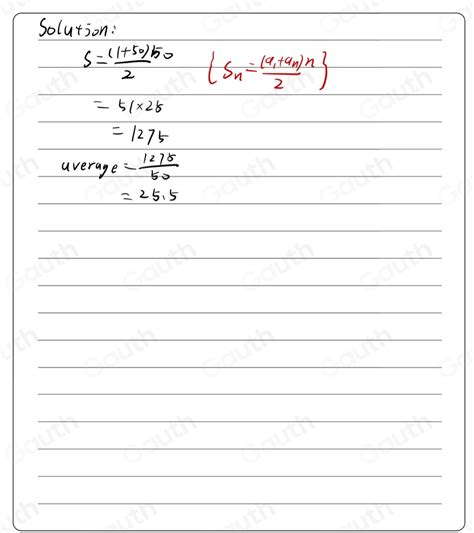 Solution:
S = (1+50)50 / 2 { Sn = (a₁+an)n / 2 }
= 51×25
= 1275
average = 1275 / 50
= 25.5